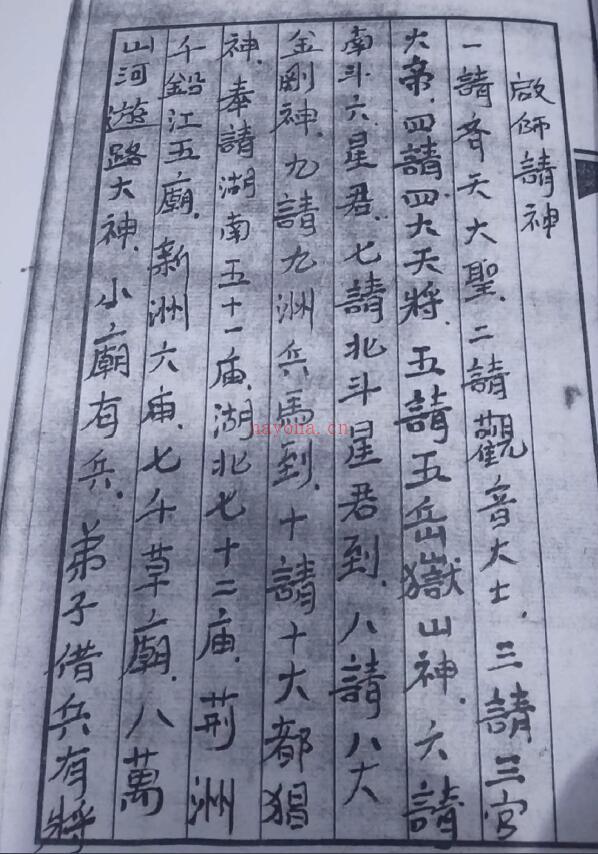 啟師請神
一請齊天大聖.二請觀音大士.三請三官
大帝.四請四大天將.五請五岳嶽山神.六請
南斗六星君.七請北斗星君到.八請八大
金剛神.九請九洲兵馬到.十請十大都猖
神.奉請湖南五十一庙.湖北七十二庙.荊洲
千鉛江五廟.新洲六庙.七千草廟.八萬
山河遊路大神.小廟有兵.弟子借兵有將
hayoha.cn